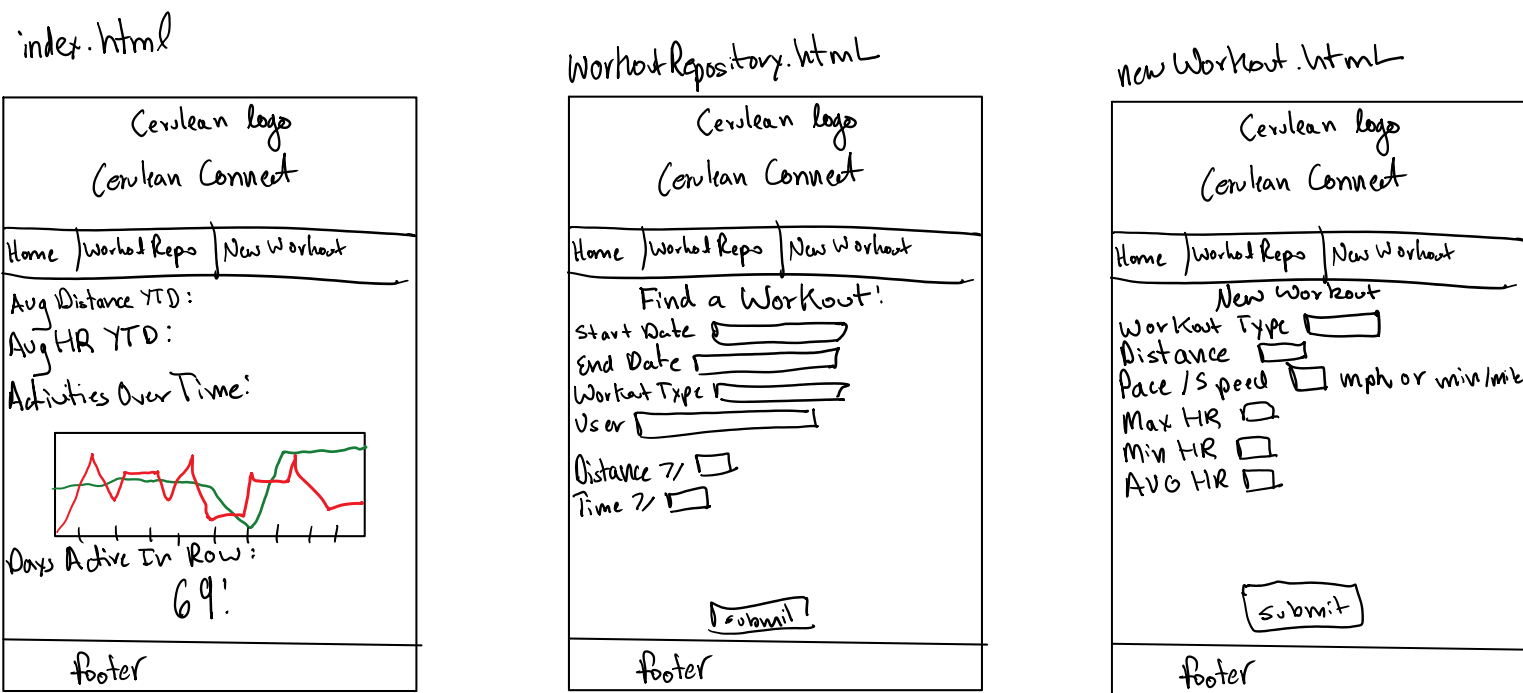 index.html
Cerulean logo
Cerulean Connect
Home Workout Repo New Workout
Avg Distance YTD:
Avg HR YTD:
Activities Over Time:
Days Active In Row:
69!
footer
WorkoutRepository.html
Cerulean logo
Cerulean Connect
Home Workout Repo New Workout
Find a Workout!
Start Date
End Date
Workout Type
User
Distance ≥
Time ≥
submit
footer
newWorkout.html
Cerulean logo
Cerulean Connect
Home Workout Repo New Workout
New Workout
Workout Type
Distance
Pace / Speed mph or min/mile
Max HR
Min HR
AVG HR
submit
footer